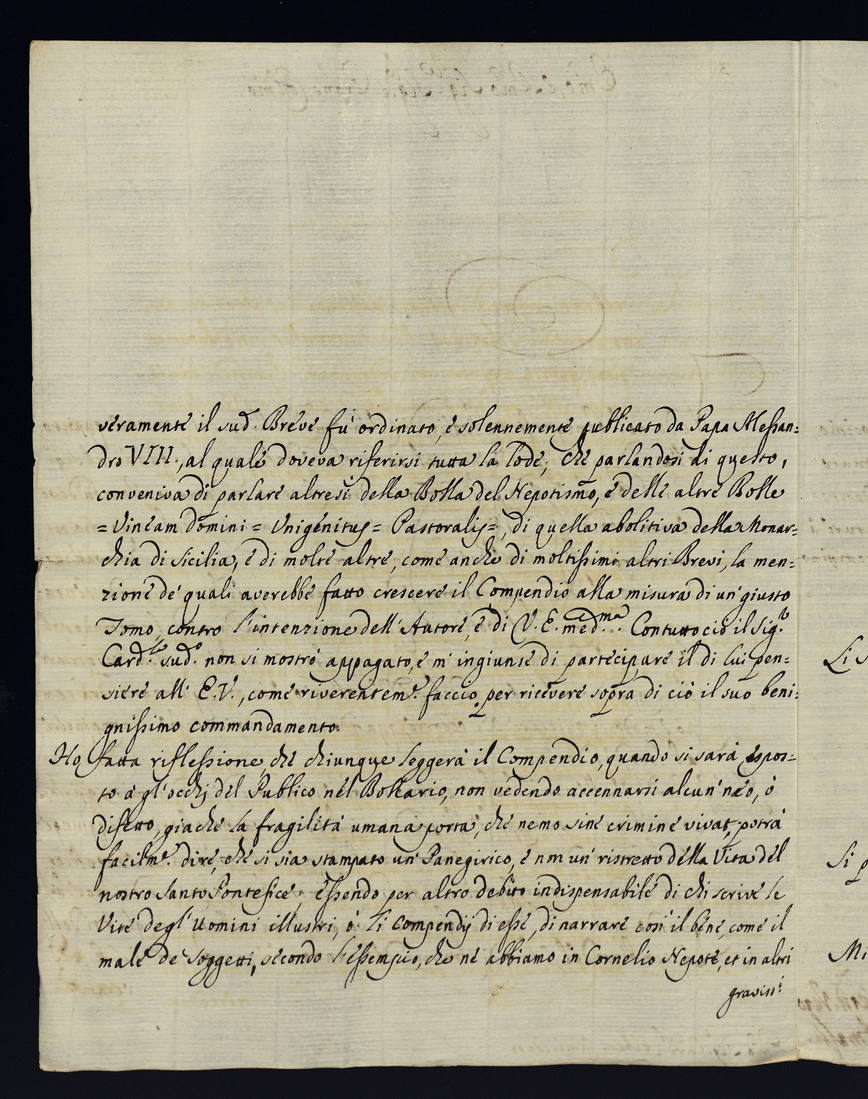 veramente il sud.º Breve fù ordinato, e solennemente publicato da Papa Alessan=
dro VIII., al quale doveva riferirsi tutta la lode; che parlandosi di questo,
conveniva di parlare altresì della Bolla del Nepotismo, e delle altre Bolle
= Vineam Domini = Unigenitus = Pastoralis =, di quella abolitiva della Monar=
chia di Sicilia, e di molte altre, come anche di moltissimi altri Brevi, la men=
zione de' quali averebbe fatto crescere il Compendio alla misura di un' giusto
Tomo, contro l'intenzione dell'Autore, e di V. E. med.ma. Contuttociò il Sig.r
Card.le sud.º non si mostrò appagato, e m' ingiunse di partecipare il di lui pen=
siere all' E.V., come riverentem.e faccio, per ricevere sopra di ciò il suo beni=
gnissimo commandamento.
Ho fatta riflessione che chiunque leggerà il Compendio, quando si sarà espos=
to à gl'occhj del Publico nel Bollario, non vedendo accennarsi alcun' neo, ò
difetto, giache la fragilità umana porta, che nemo sine crimine vivat, potrà
facilm.e dire, che si sia stampato un' Panegirico, e non un' ristretto della Vita del
nostro Santo Pontefice; essendo per altro debito indispensabile di chi scrive le
Vite degl'Uomini illustri, ò li Compendij di esse, di narrare così il bene, come il
male de' Soggetti, secondo l'essempio, che ne abbiamo in Cornelio Nepote, et in altri
graviss.i